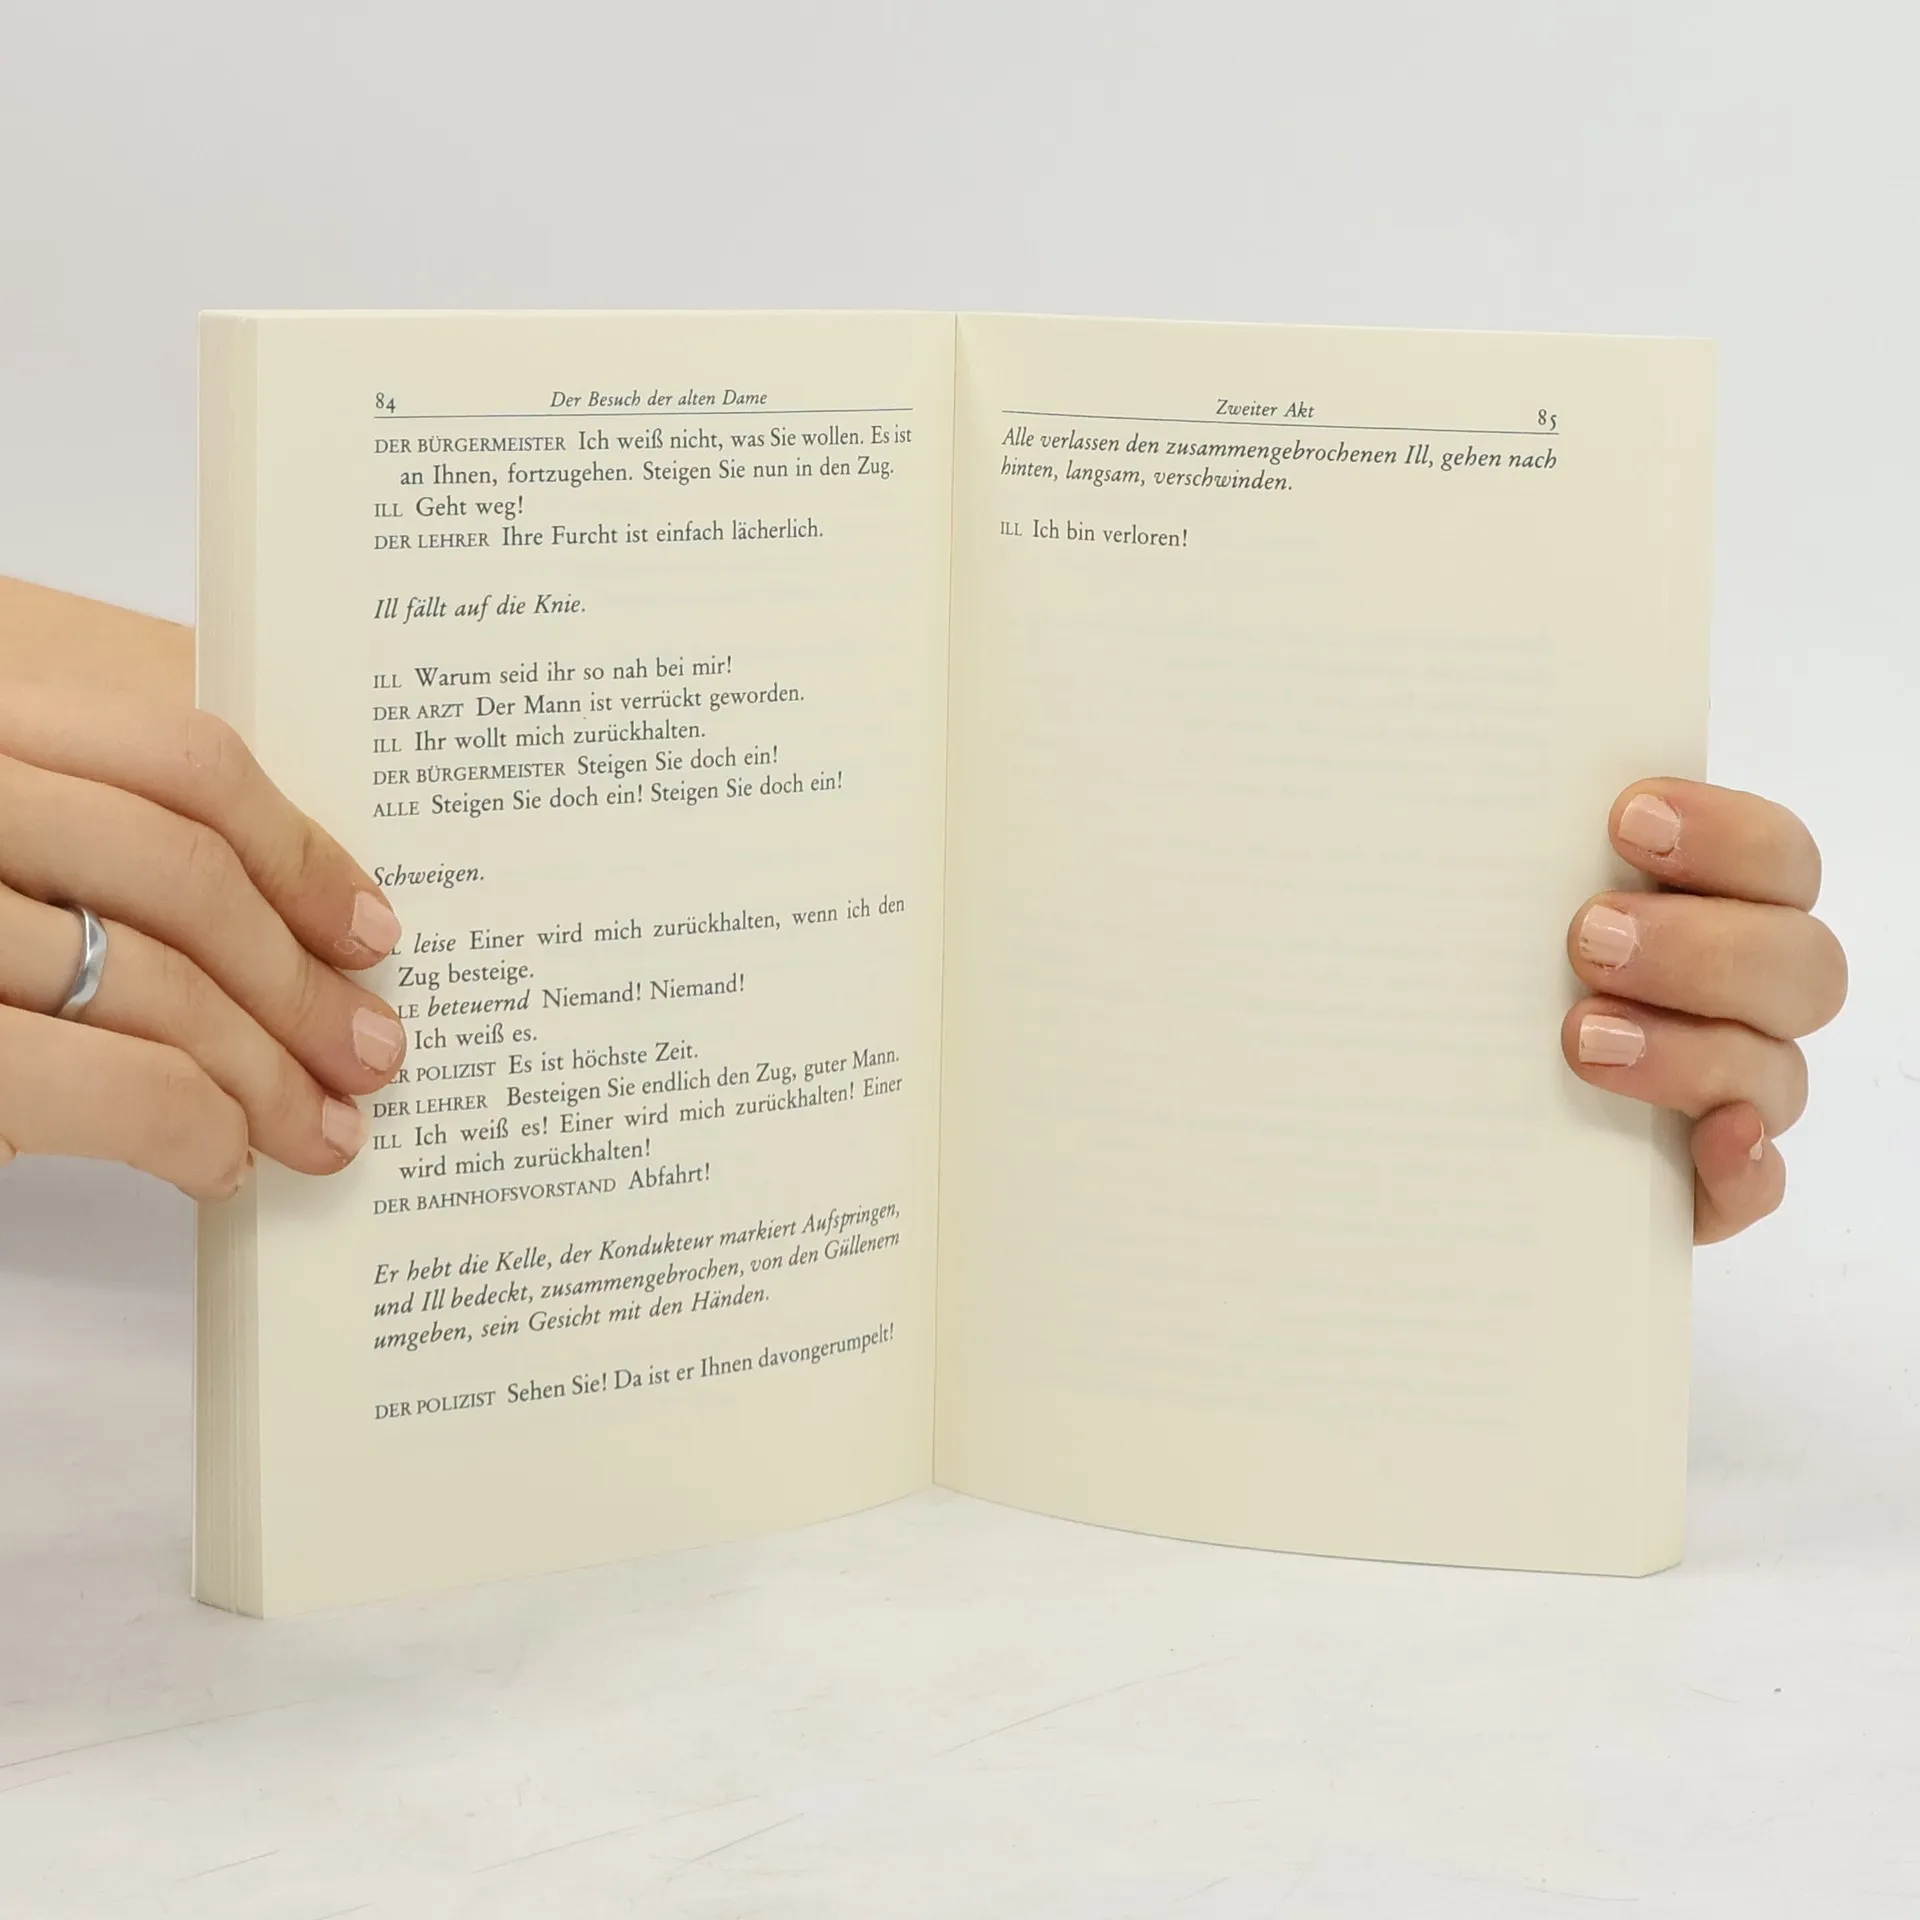 84 Der Besuch der alten Dame
DER BÜRGERMEISTER Ich weiß nicht, was Sie wollen. Es ist
an Ihnen, fortzugehen. Steigen Sie nun in den Zug.
ILL Geht weg!
DER LEHRER Ihre Furcht ist einfach lächerlich.
Ill fällt auf die Knie.
ILL Warum seid ihr so nah bei mir!
DER ARZT Der Mann ist verrückt geworden.
ILL Ihr wollt mich zurückhalten.
DER BÜRGERMEISTER Steigen Sie doch ein!
ALLE Steigen Sie doch ein! Steigen Sie doch ein!
Schweigen.
L leise Einer wird mich zurückhalten, wenn ich den
Zug besteige.
LE beteuernd Niemand! Niemand!
Ich weiß es.
ER POLIZIST Es ist höchste Zeit.
DER LEHRER Besteigen Sie endlich den Zug, guter Mann.
ILL Ich weiß es! Einer wird mich zurückhalten! Einer
wird mich zurückhalten!
DER BAHNHOFSVORSTAND Abfahrt!
Er hebt die Kelle, der Kondukteur markiert Aufspringen,
und Ill bedeckt, zusammengebrochen, von den Güllenern
umgeben, sein Gesicht mit den Händen.
DER POLIZIST Sehen Sie! Da ist er Ihnen davongerumpelt!
Zweiter Akt 85
Alle verlassen den zusammengebrochenen Ill, gehen nach
hinten, langsam, verschwinden.
ILL Ich bin verloren!